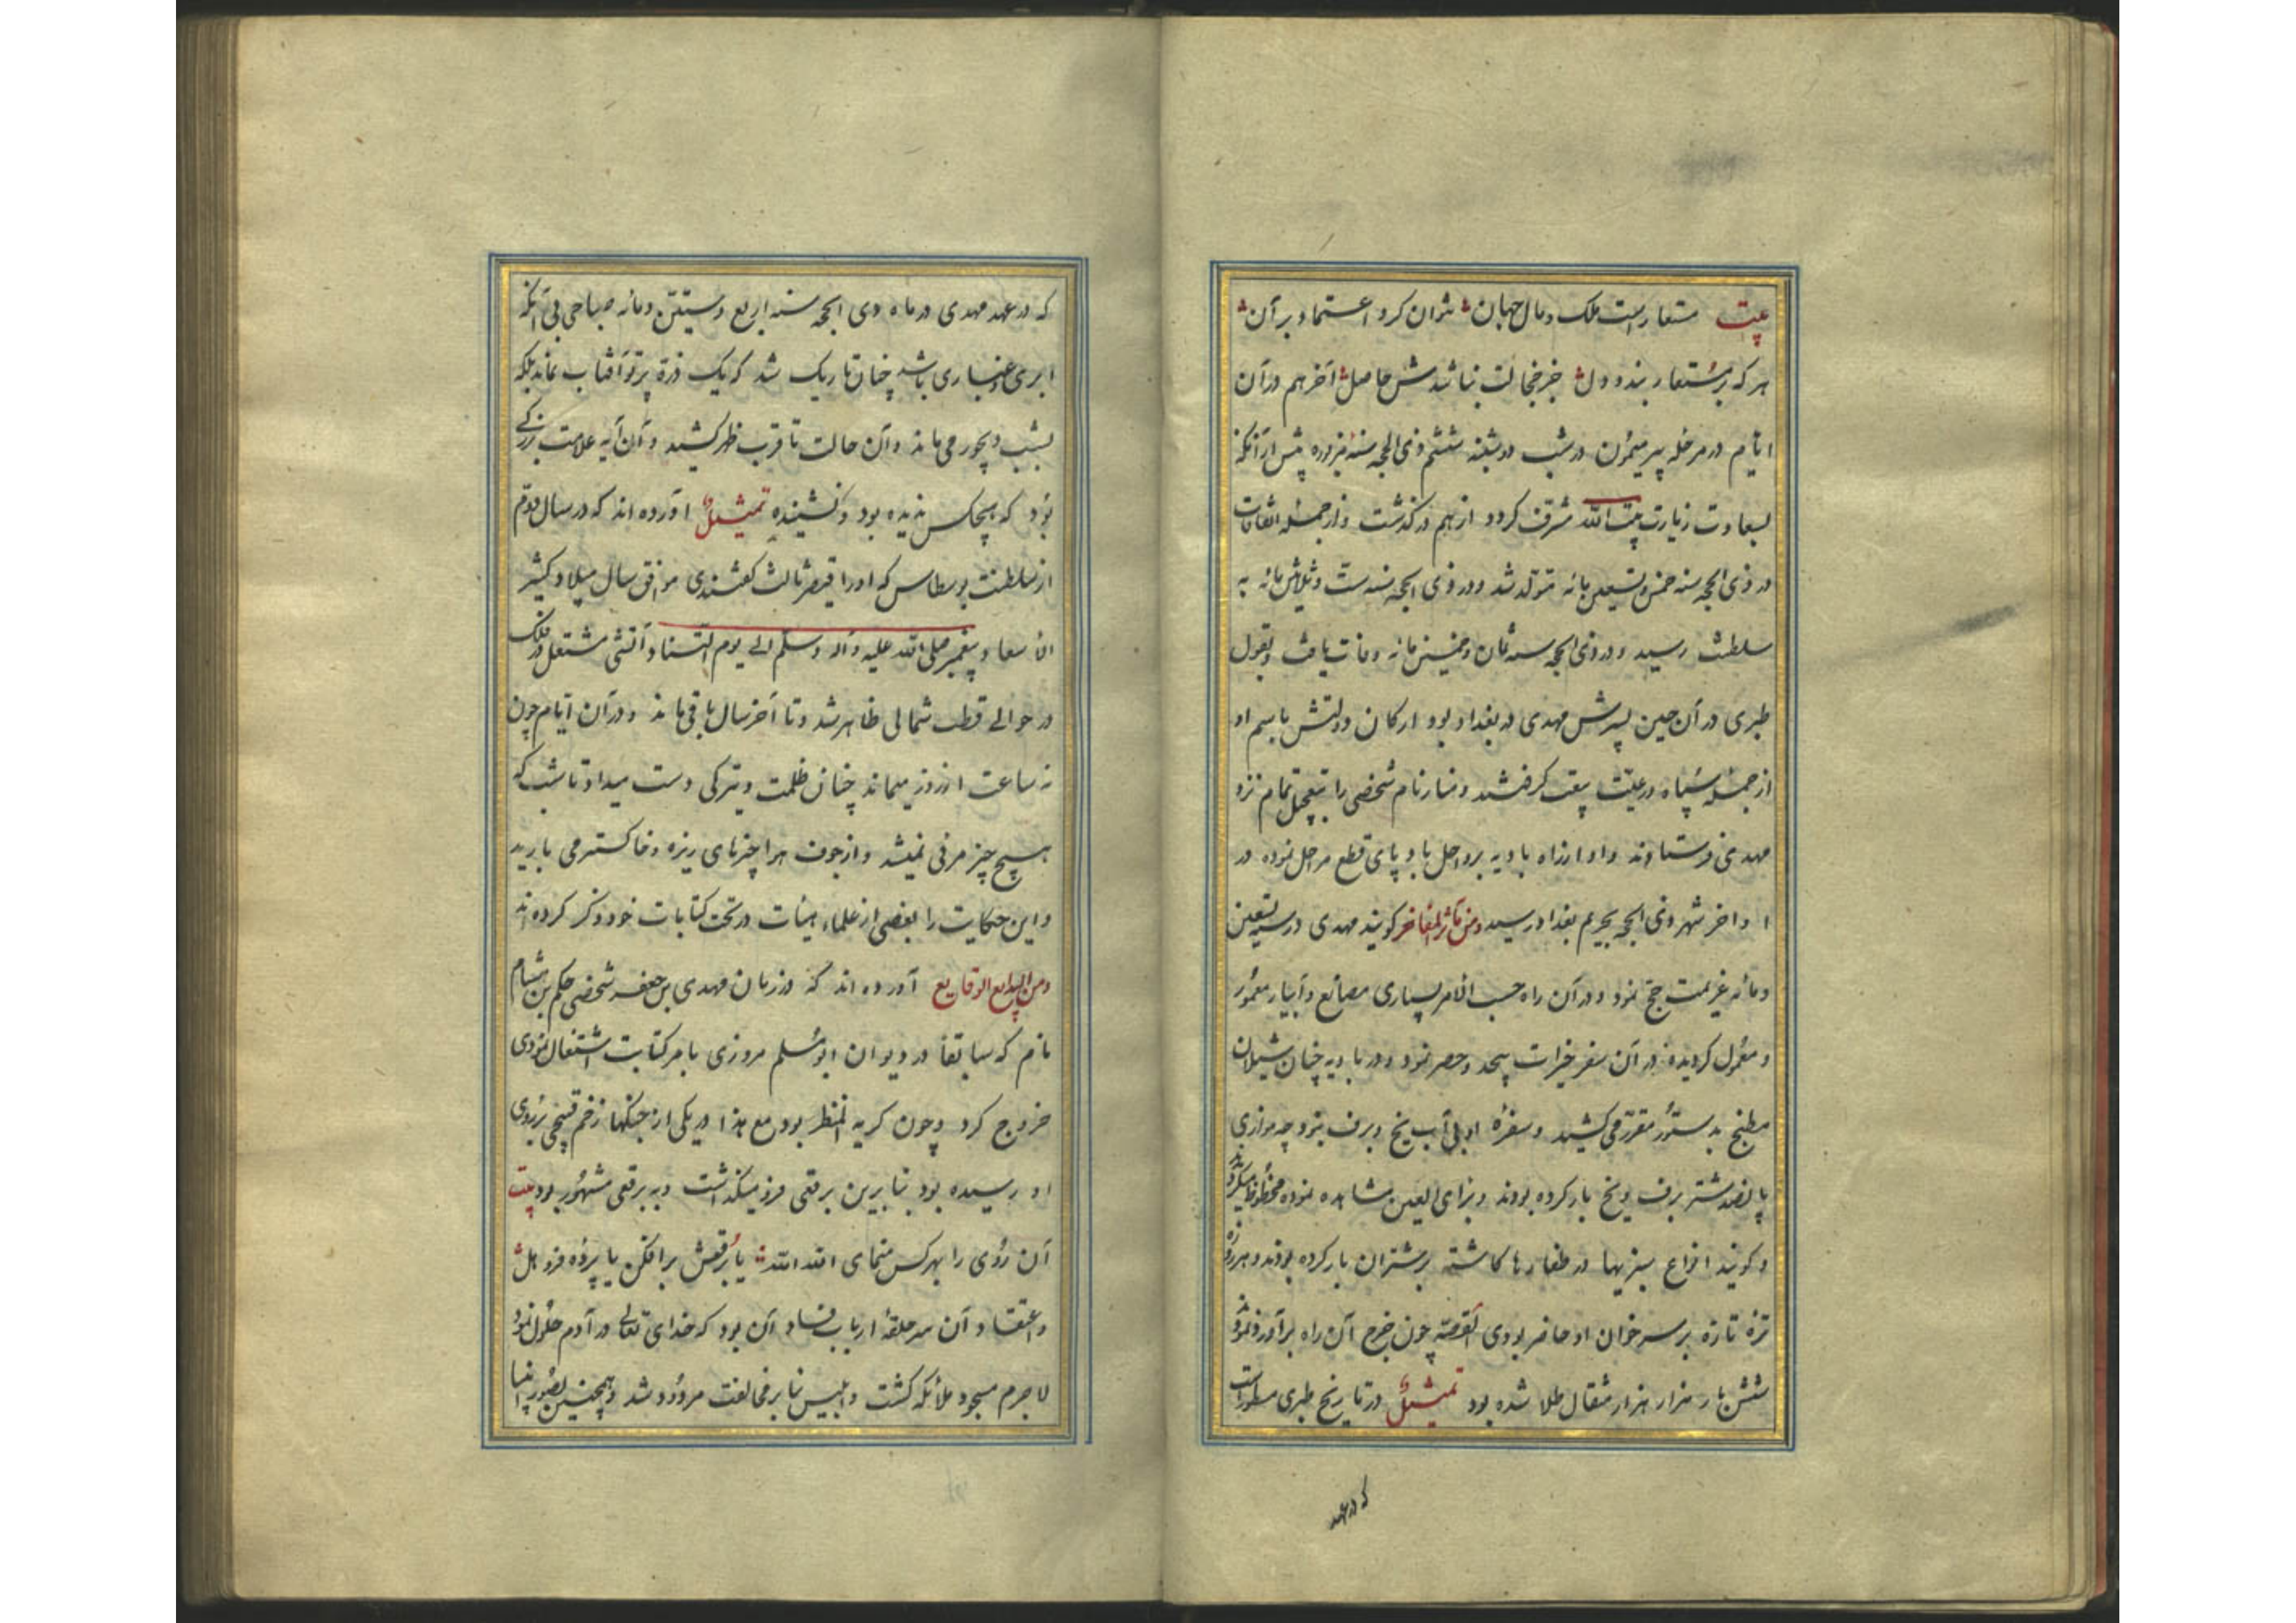 بیت مستعار است ملک و مال جهان نتوان کرد اعتماد بر آن
هر که بر مستعار بندد دل جز خجالت نباشدش حاصل آخر هم در آن
ایام در مرحله بیر میمون در شب دوشنبه ششم ذی الحجه سنه مزبوره پیش از آنکه
بسعادت زیارت بیت الله مشرف کردد از هم در کذشت و از جمله اتفاقات
در ذی الحجه سنه خمس و تسعین مائه متولد شد و در ذی الحجه سنه ست و ثلثین مائه به
سلطنت رسید و در ذی الحجه سنه ثمان و خمسین مائه وفات یافت و بقول
طبری در آن حین پسرش مهدی در بغداد بود ارکان دولتش باسم او
از جمله سپاه و رعیت بیعت کرفتند و منار نام شخصی را بتعجیل تمام نزد
مهدی فرستادند و او از راه بادیه برواحل باد پای قطع مراحل نموده در
اواخر شهر ذی الحجه بحریم بغداد رسید ومن مآثر المفاخر کویند مهدی در ستین
ومائه عزیمت حج نمود و در آن راه حسب الامر بسیاری مصانع و آبیار معمور
و معمول کردیده در آن سفر خیرات بیحد و حصر نمود و در بادیه چنان شیلان
مطبخ بدستور مقرر می کشید و سفره او بی آب یخ و برف نبود چه موازی
پانصد شتر برف و یخ بار کرده بودند و برای العین مشاهده نموده محظوظ میکردند
و کویند انواع سبزیها در طغارها کاشته بر شتران بار کرده بودند و هر روزه
تره تازه بر سر خوان او حاضر بودی القصه چون خرج آن راه برآورد نمود
شش بار هزار هزار مثقال طلا شده بود تمثیل در تاریخ طبری مسطور است
که در عهد
که در عهد مهدی در ماه ذی الحجه سنه اربع و ستین و مائه صباحی بی آنکه
ابری و غباری باشد چنان تاریک شد که یک ذره پرتو آفتاب نماند بلکه
بشب دیجور می ماند و آن حالت تا قرب ظهر کشید و آن آیه علامت بزرکی
بود که هیچکس ندیده بود و نشنیده تمثیل آورده اند که در سال دوم
از سلطنت بوسطاس که او را قیصر ثالث کفتندی موافق سال میلاد کثیر
الاسعاد پیغمبر صلی الله علیه وآله وسلم الی یوم التناد آتشی مشتعل در فلک
در حوالی قطب شمالی ظاهر شد و تا آخر سال باقی ماند و در آن ایام چون
نه ساعت از روز میماند چنان ظلمت و تیرکی دست میداد تا شب که
هیچ چیز مرئی نمیشد و از جوف هوا چیزهای ریزه و خاکستر می بارید
و این حکایت را بعضی از علماء هیئات در تحت کتابات خود ذکر کرده اند
ومن البدایع الوقایع آورده اند که در زمان مهدی بن جعفر شخصی حکم بن هشام
نام که سابقا در دیوان ابو مسلم مروزی بامر کتابت اشتغال نمودی
خروج کرد و چون کریه المنظر بود مع هذا در یکی از جنکها زخم قبیحی بر روی
او رسیده بود بنابرین برقعی فرو میکذاشت و به برقعی مشهور بود بیت
آن روی را بهر کس منمای الله الله یا برقعش برافکن یا پرده فرو هل
و اعتقاد آن سر حلقه ارباب فساد آن بود که خدای تعالی در آدم حلول نمود
لا جرم مسجود ملائکه کشت و ابلیس بنابر مخالفت مردود شد و همچنین بصور انبیا